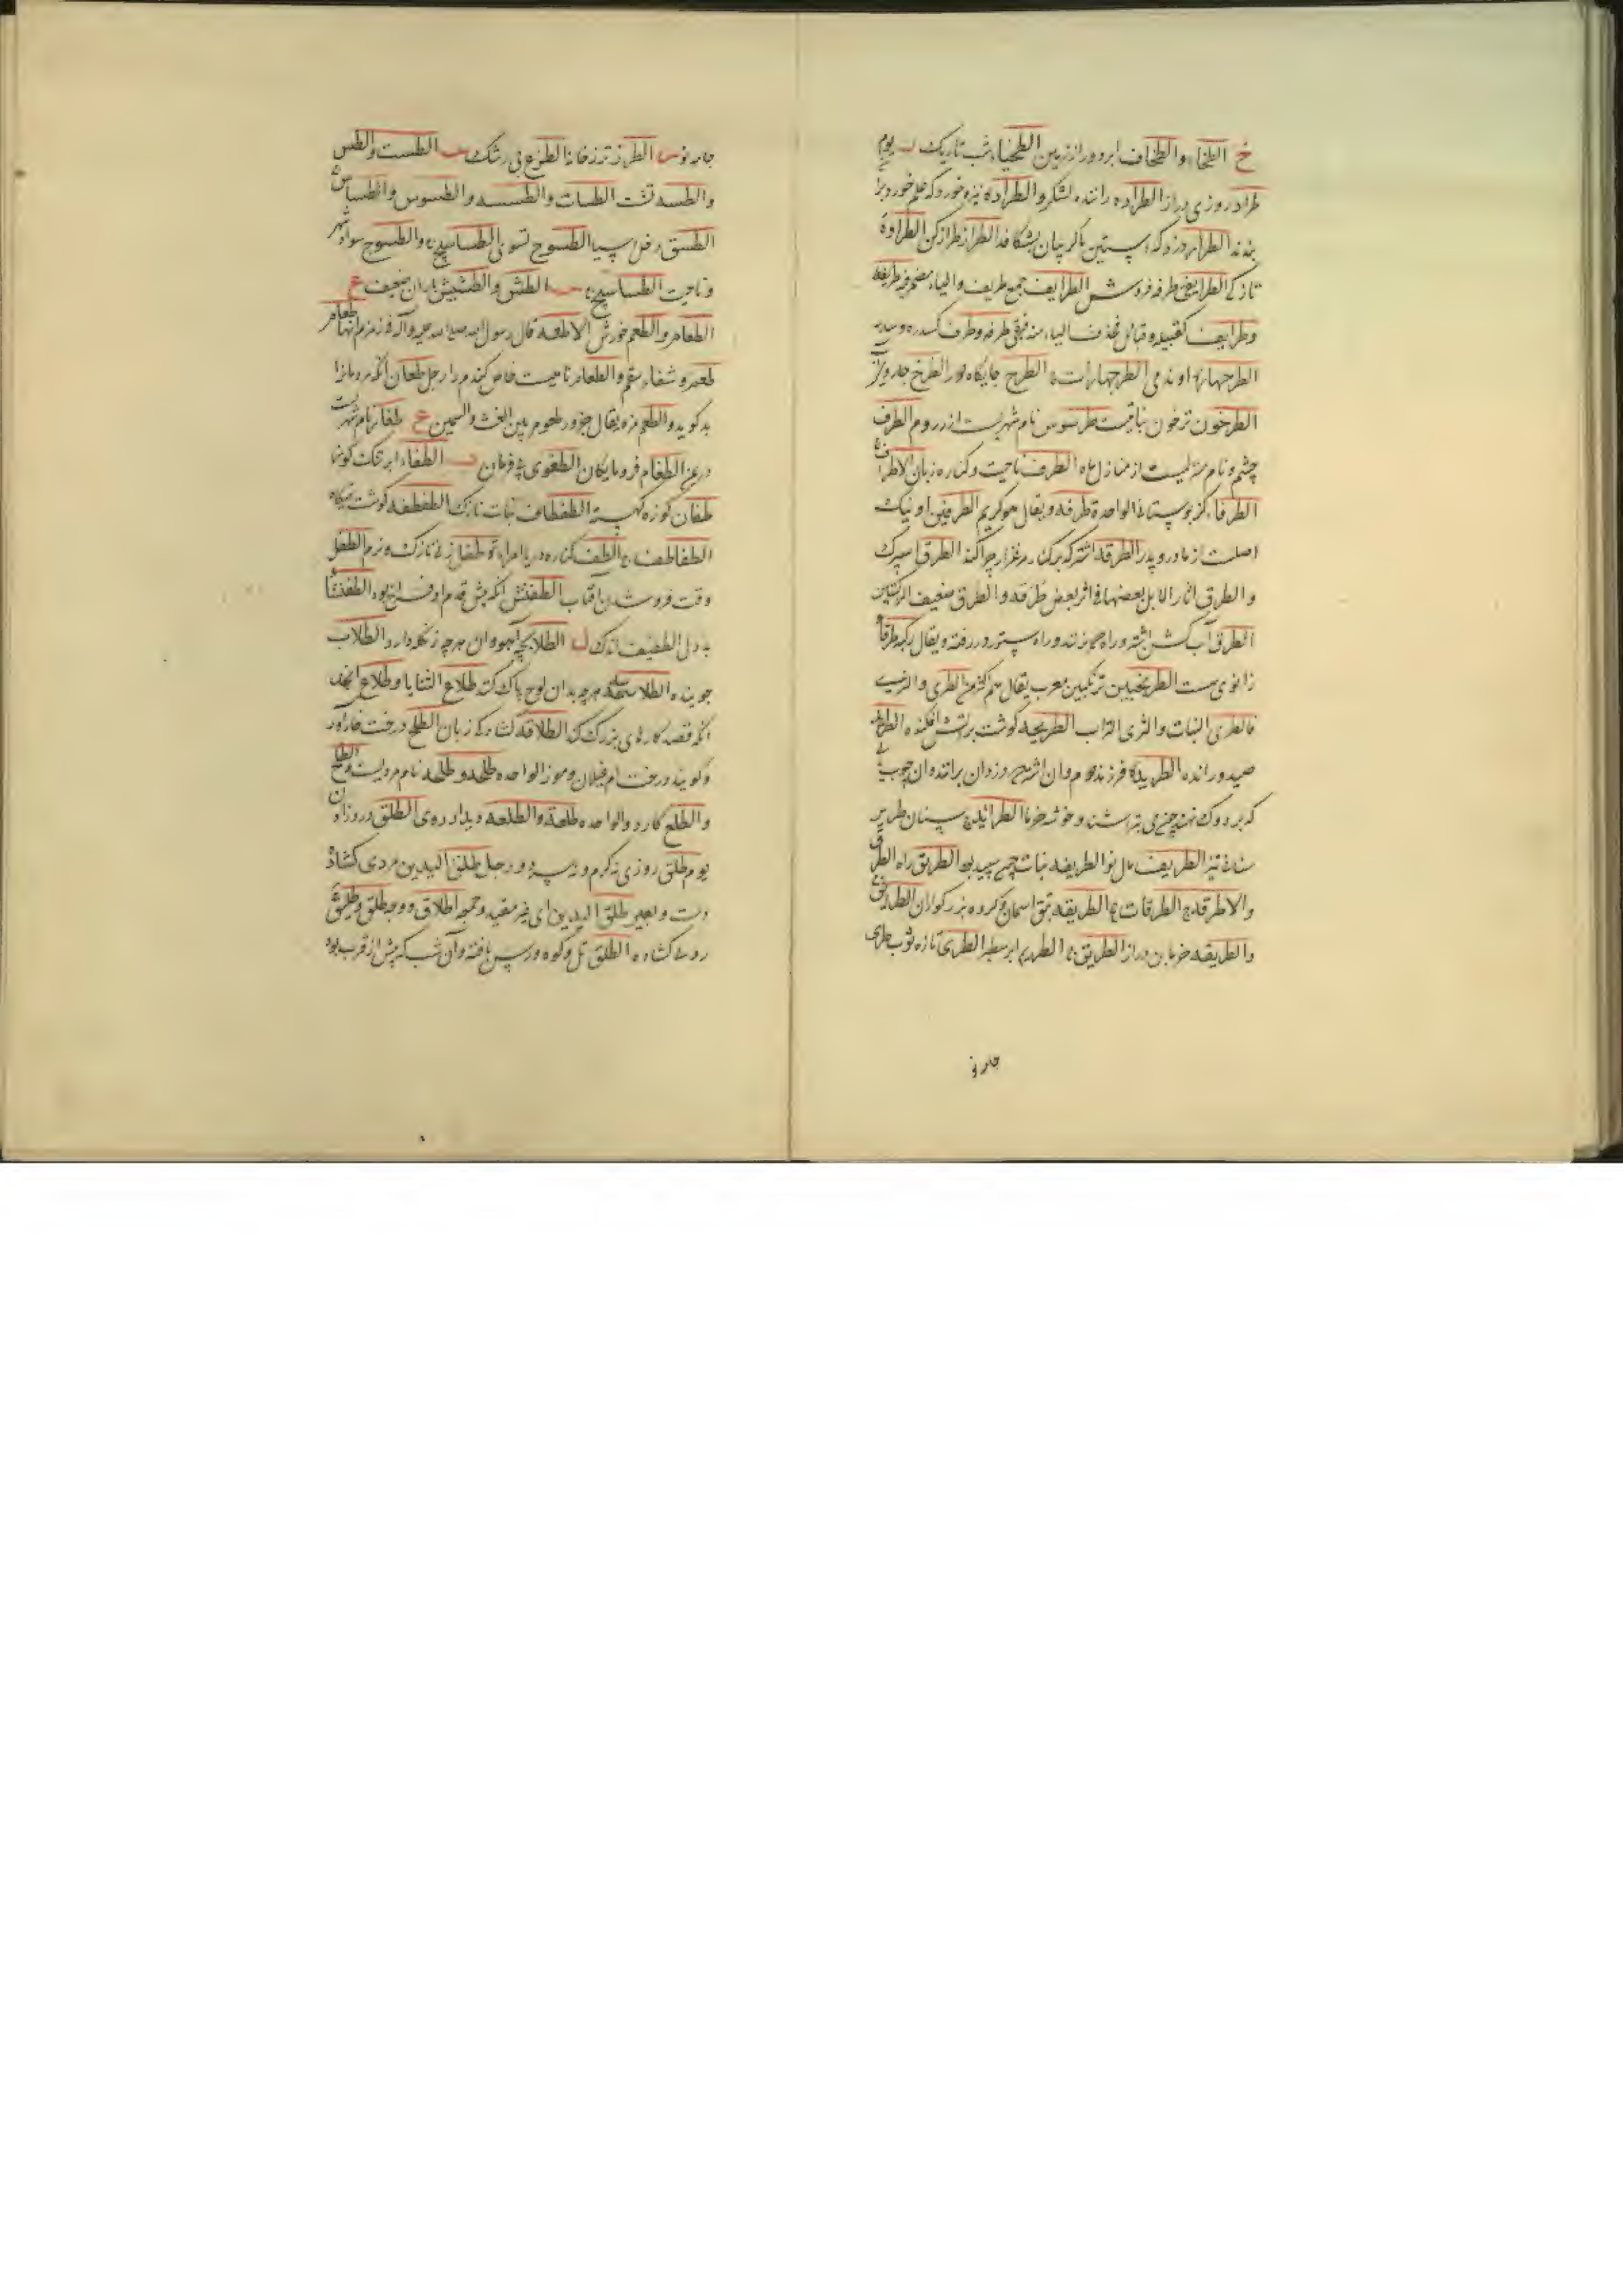 خ الطخاء والطخاف ابر دور از زمین الطخیاء شب تاریک ر یوم
طراد روزی دراز الطراده راننده لشکر و الطراده نیزه خورد که علم خورد بر
بندند الطرار دزد که استین یا کریبان بشکافد الطراز طراز کن الطراوة
تازکی الطرایفی طرفه فروش الطرایف جمع طریف والیاء مضمر فیه طریفه
وطرایف کقبیله وقبائل فحذف الیاء منه فبقی طرفه وطرف کسدره وسدر
الطرجهاره اوند می الطرجهارات ج الطرح جایگاه دور الطرخ
الطرخون ترخون نباتیست طرسوس نام شهریست از روم الطرف
چشم و نام منزلیست از منازل ماه الطرف ناحیت و کناره زبان الاطراف ج
الطرفاء کز بوستانی الواحدة طرفه ویقال هو کریم الطرفین او نیک
اصلت از مادر و پدر الطرفه اشتر که برکناره مرغزار چرا کند الطرق اسپرک
والطرق اثار الابل بعضها فی اثر بعض طرقه والطرق ضعیف الرکبتین
الطرق آب کشن اشتر و راه و ستور در رفته ویقال برکبه طرق
زانوی سست الطرنجبین ترنکبین معرب یقال هم اکثر من الطری والثری
فالطری النبات والثری التراب الطریحه کوشت بر آتش افکنده الطرید
صید و رانده الطریده فرزند دوم وان اشتر که دزدان برانند وان چوب
که بر دوک نهند چیزی بتراشند و خوشه خرما الطرائد ج سنان طریر
سنان تیز الطریف مال نو الطریفه نبات چون سپید بود الطریق راه الطرق
والاطرقه ج الطرقات ج الطریقه تبق اسمان وکروه بزرکواران الطرایق ج
والطریقه خرمابن دراز الطریق ج الطریم ابر سطبر الطری تازه ثوب طری
جامه نو
جامه نو س الطرز ترزخانه الطزع بی رشک س الطست والطس
والطسه تشت الطسات والطسسه والطسوس والطساس ج
الطسق دخل سپیا الطسوج تسو الطساسیج ج والطسوج سواد شهر
وناحیت الطساسیج ج ش الطش والطشیش باران ضعیف ع
الطعام والطعم خورش الاطعمه قال رسول الله صلی الله علیه وآله فی زمزم انها طعام
طعم وشفاء سقم والطعام نامیست خاص کندم را رجل طعان آنکه مردمان را
بد کوید والطعم مزه یقال جزور طعوم بین الغث والسمین غ طغار نام شهریست
الطغام فرومایکان الطغوی بی فرمان ف الطفاء ابر تنک کوشه
طفان کوزه الطفطاف نبات نازک الطفطفه کوشت تهیکاه
الطفاطف ج الطف کناره دریا امراة طفله زنی نازک و نرم الطفل
وقت فرو شدن آفتاب الطفنش آنکه پیش قدم او فراخ بود الطفنشا
بددل الطفیف اندک ل الطلا بچه آهو وان هرچه زنکله دارد الطلاب
جوینده الطلاسه هرچه بدان لوح پاک کنند طلاع الثنایا وطلاع انجد
آنکه قصد کارهای بزرک کند الطلاقه کشادکی زبان الطلح درخت خارآور
وکویند درخت ام غیلان وموز الواحده طلحه وطلحه نام مردیست والطلح
والطلع کاردو الواحده طلعة والطلعه دیدار روی الطلق درد زادن
یوم طلق روزی نه کرم ونه سرد ورجل طلق الیدین مردی کشاده
دست وبعیر طلق الیدین ای غیر مقید وجمعه اطلاق ووجه طلق وطلیق
روی کشاده الطلق تل وکوه ورسن بافته وآن شب که پیش از قرب بود